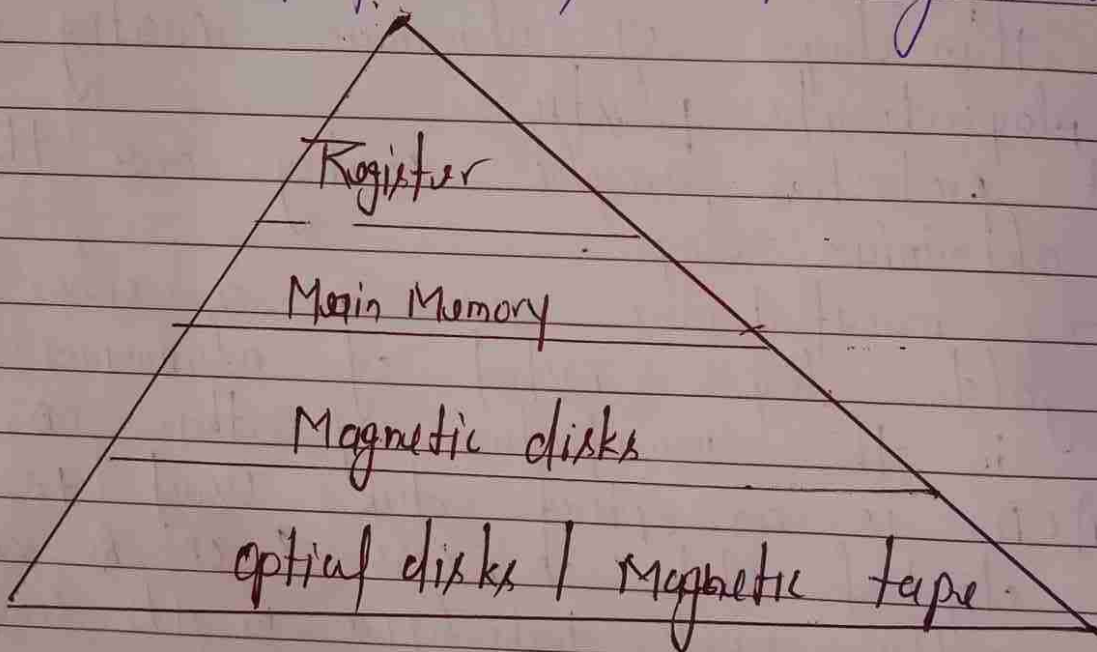 Register
Main Memory
Magnetic disks
optial disks / Magnetic tape